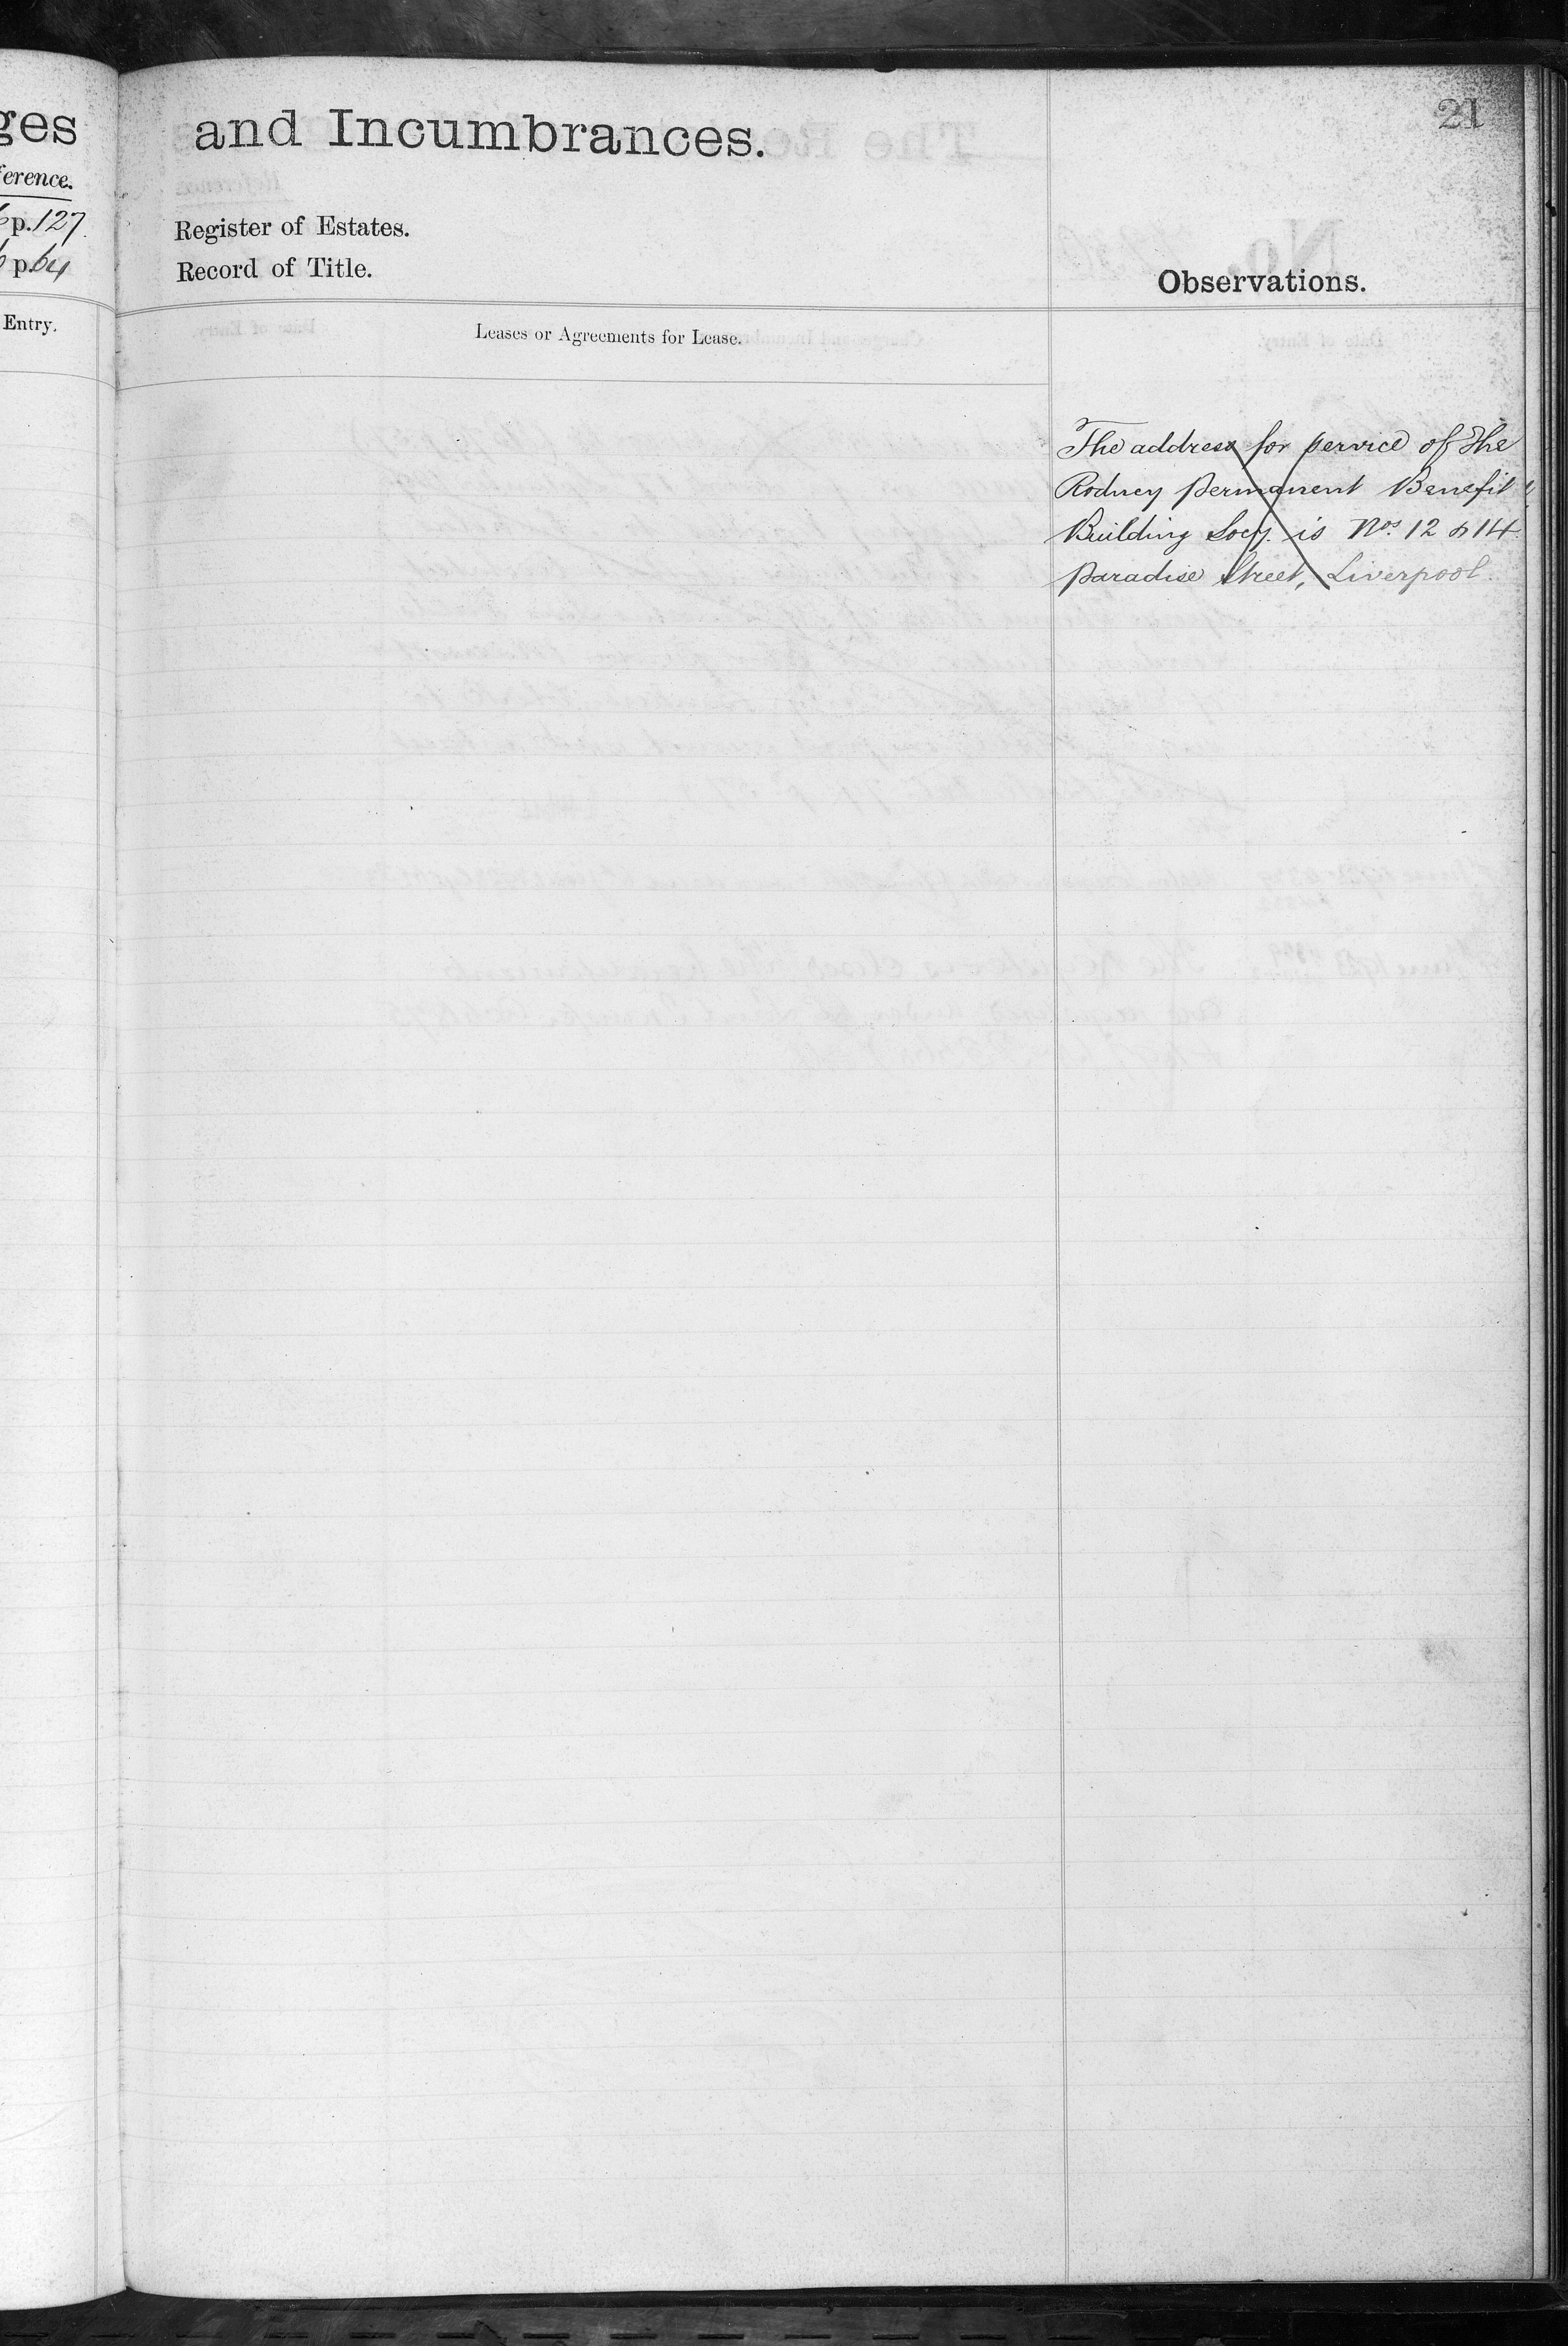 21
and Incumbrances.
ges
erence.
p. 127.
p. 64
Entry.
Register of Estates.
Record of Title.
Observations.
Leases or Agreements for Lease.
The address for service of The
Rodney Permanent Benefit
Building Socy. is Nos. 12 & 14
Paradise Street, Liverpool.